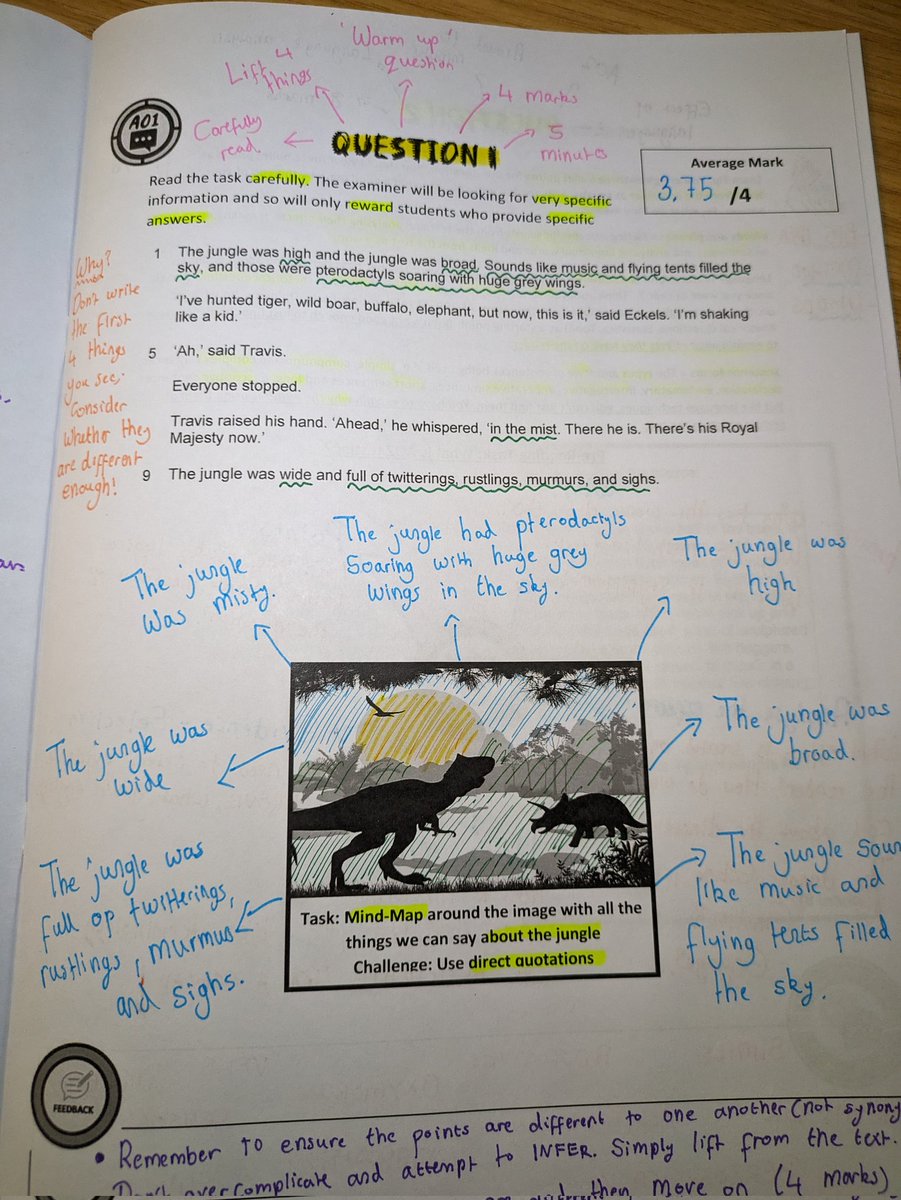 'Warm up'
question
Lift 4
things
4 marks
5
minutes
Carefully
read
AO1
QUESTION 1
Average Mark
3.75 /4
Read the task carefully. The examiner will be looking for very specific
information and so will only reward students who provide specific
answers.
Why?
Don't write
the first
4 things
you see.
Consider
whether they
are different
enough!
1 The jungle was high and the jungle was broad. Sounds like music and flying tents filled the
sky, and those were pterodactyls soaring with huge grey wings.
'I've hunted tiger, wild boar, buffalo, elephant, but now, this is it,' said Eckels. 'I'm shaking
like a kid.'
5 'Ah,' said Travis.
Everyone stopped.
Travis raised his hand. 'Ahead,' he whispered, 'in the mist. There he is. There's his Royal
Majesty now.'
9 The jungle was wide and full of twitterings, rustlings, murmurs, and sighs.
The jungle
was misty.
The jungle had pterodactyls
soaring with huge grey
wings in the sky.
The jungle was
high
The jungle was
wide
The jungle was
broad.
The jungle was
full of twitterings,
rustlings, murmus
and sighs.
The jungle Soun
like music and
flying tents filled
the sky.
Task: Mind-Map around the image with all the
things we can say about the jungle
Challenge: Use direct quotations
FEEDBACK
• Remember to ensure the points are different to one another (not synony
Don't overcomplicate and attempt to INFER. Simply lift from the text.
then move on (4 marks)